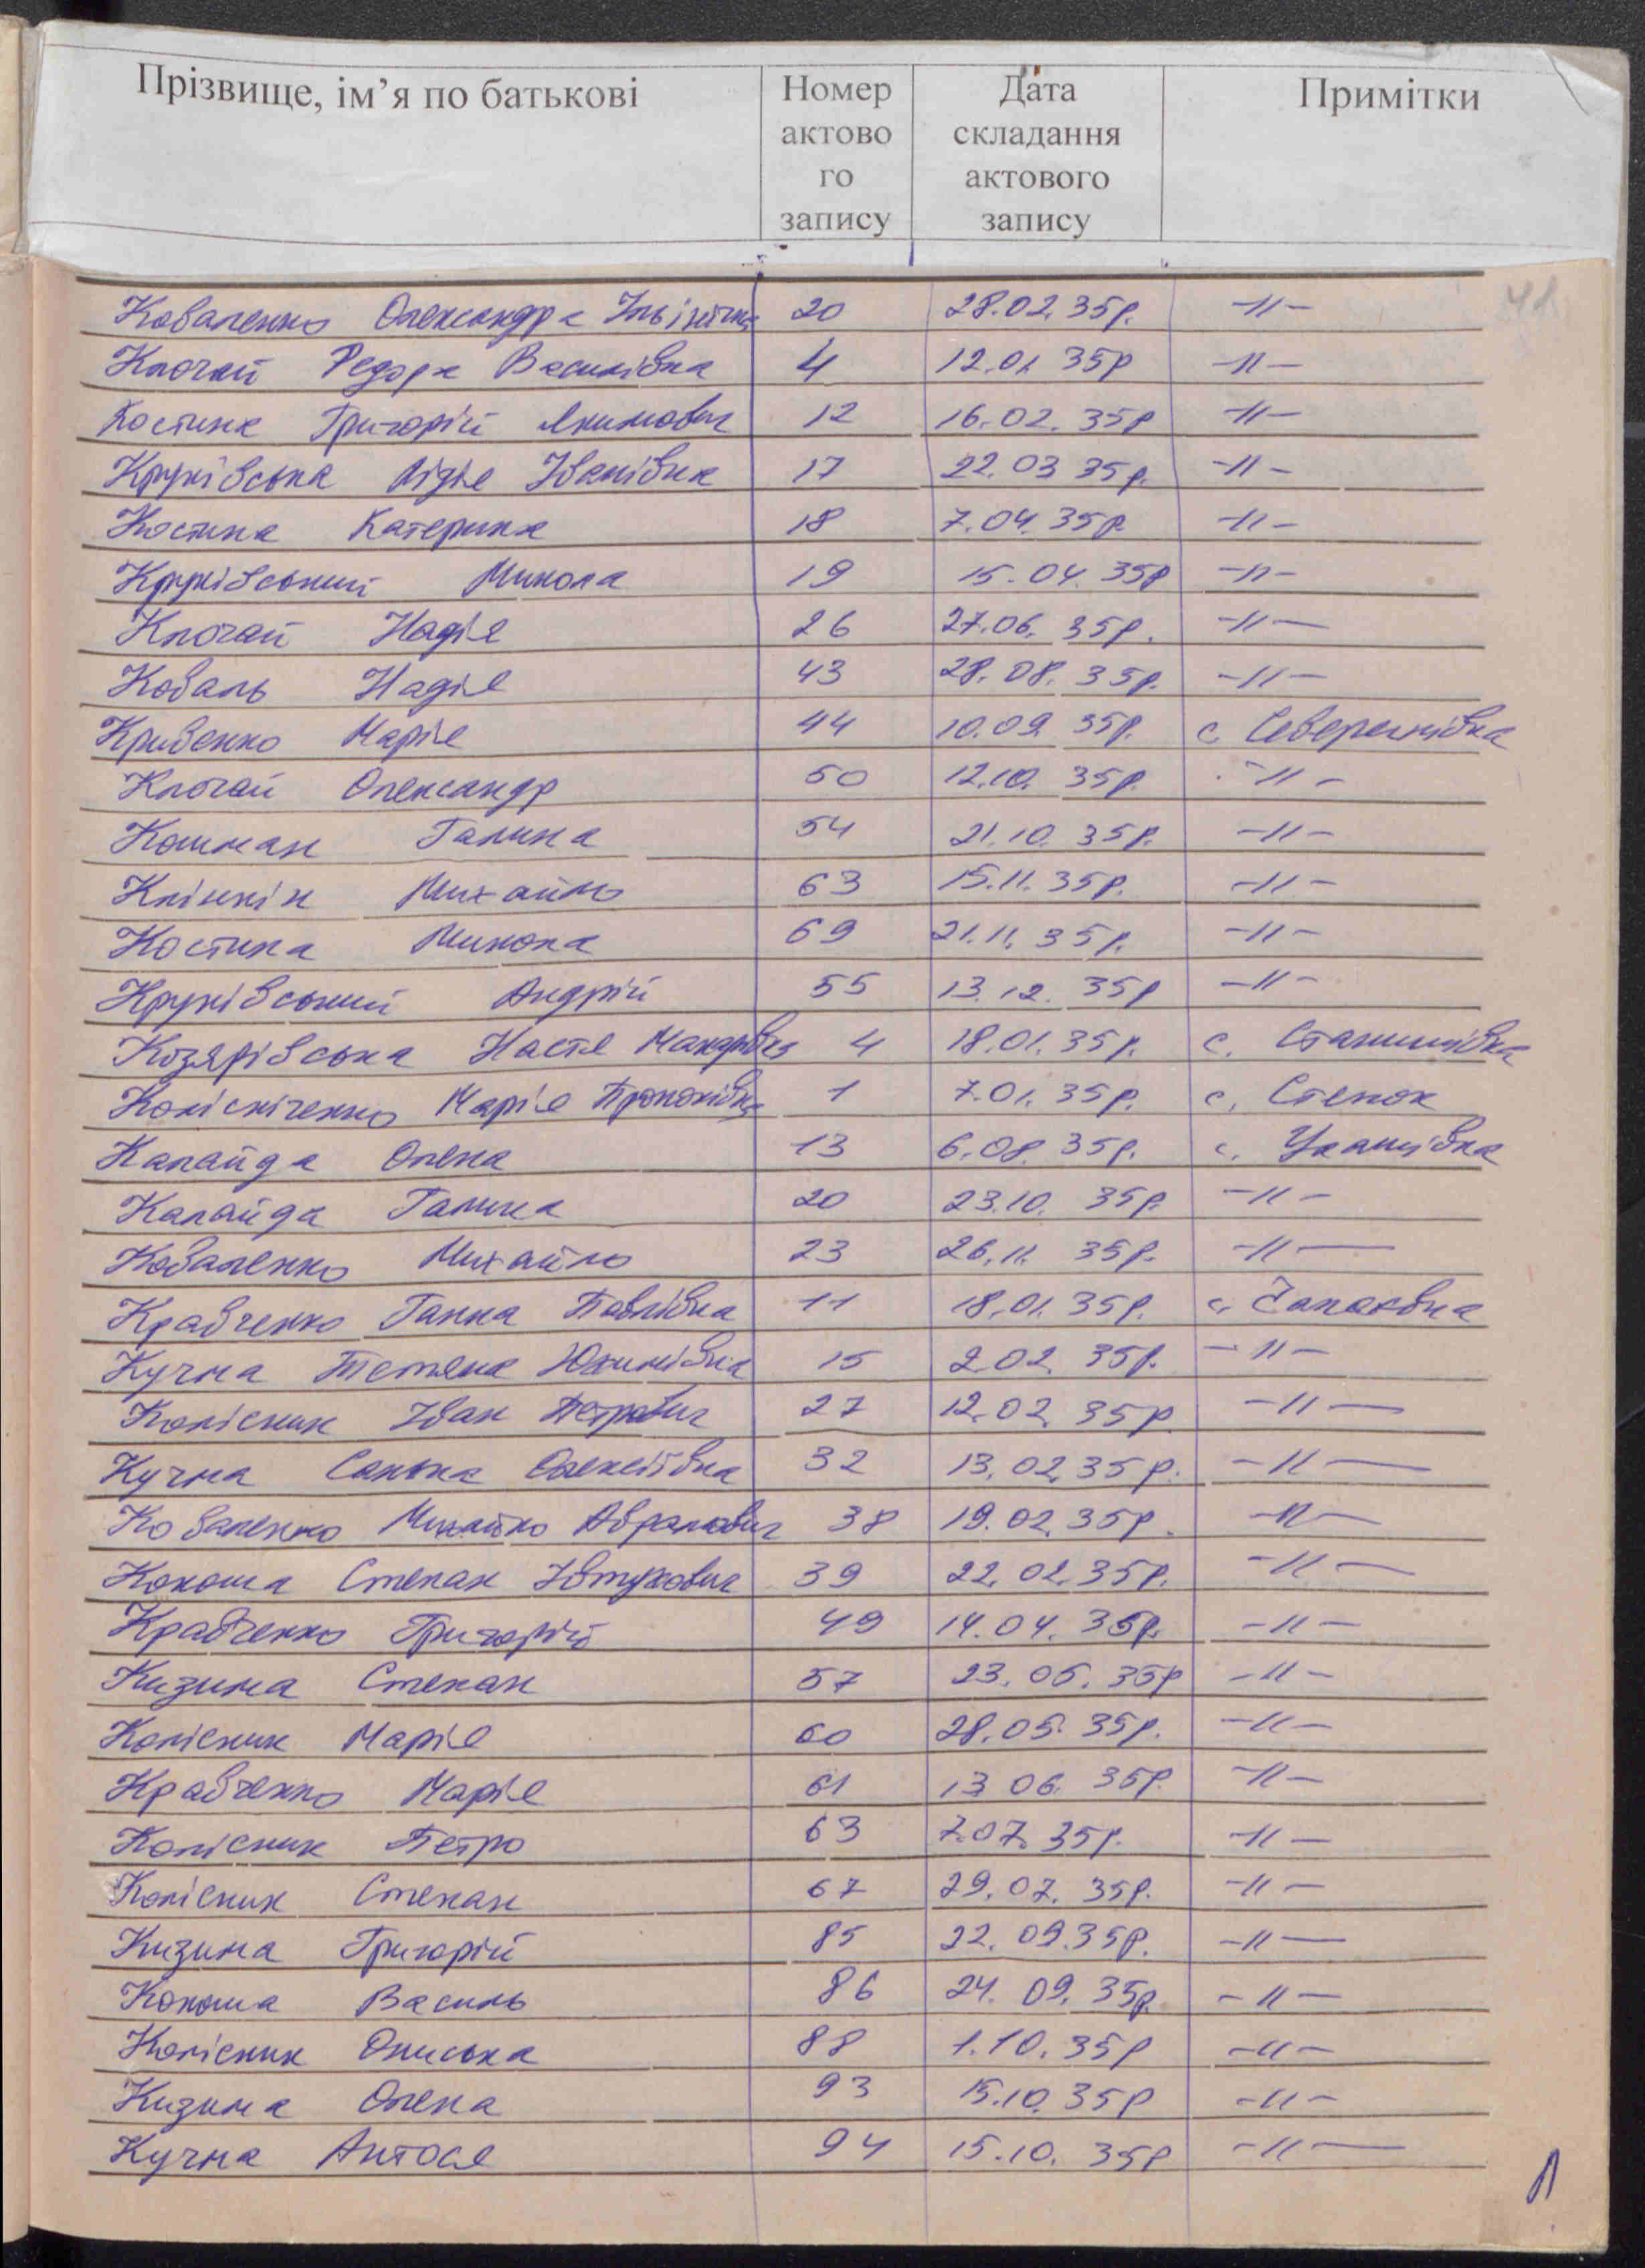 Прізвище, ім’я по батькові Номер актово го запису Дата складання актового запису Примітки
Коваленко Олександра Ільінічна 20 28.02.35р. -//-
Клочай Федора Василівна 4 12.01.35р -//-
Костина Григорій Якимович 12 16.02.35р -//-
Круківська Лідіє Іванівна 17 22.03 35р. -//-
Костина Катерина 18 7.04.35р. -//-
Круківський Микола 19 15.04.35р -//-
Клочай Надіє 26 27.06.35р. -//-
Коваль Надіє 43 28.08.35р. -//-
Кривенко Маріє 44 10.09.35р. с.
Клочай Олександр 50 12.10.35р. -//-
Кошман Галина 54 21.10.35р. -//-
Клінкін Михайло 63 15.11.35р. -//-
Костина Микола 69 21.11.35р. -//-
Круківський Андрій 55 13.12.35р -//-
Настя 4 18.01.35р. с. Станишівка
Колісніченко Маріє 1 7.01.35р. с. Стенок
Калайда Олена 13 6.08.35р. с. Укашівка
Калайда Галина 20 23.10.35р. -//-
Коваленко Михайло 23 26.11.35р. -//-
Кравченко Ганна Павлівна 11 18.01.35р. с.
Кучма Тетяна Юхимівна 15 2.02.35р. -//-
Колісник Іван Петрович 27 12.02.35р -//-
Кучма Санька Олексіївна 32 13.02.35р. -//-
Коваленко Михайло Абрамович 38 19.02.35р. -//-
Кокоша Степан Івтухович 39 22.02.35р. -//-
Кравченко Григорій 49 14.04.35р. -//-
Кизима Степан 57 23.05.35р -//-
Колісник Маріє 60 28.05.35р. -//-
Кравченко Маріє 61 13 06.35р. -//-
Колісник Петро 63 7.07.35р. -//-
Колісник Степан 67 29.07.35р. -//-
Кизима Григорій 85 22.09.35р. -//-
Кокоша Василь 86 24.09.35р. -//-
Колісник Ониська 88 1.10.35р -//-
Кизима Олена 93 15.10.35р -//-
Кучма Антося 94 15.10.35р -//-